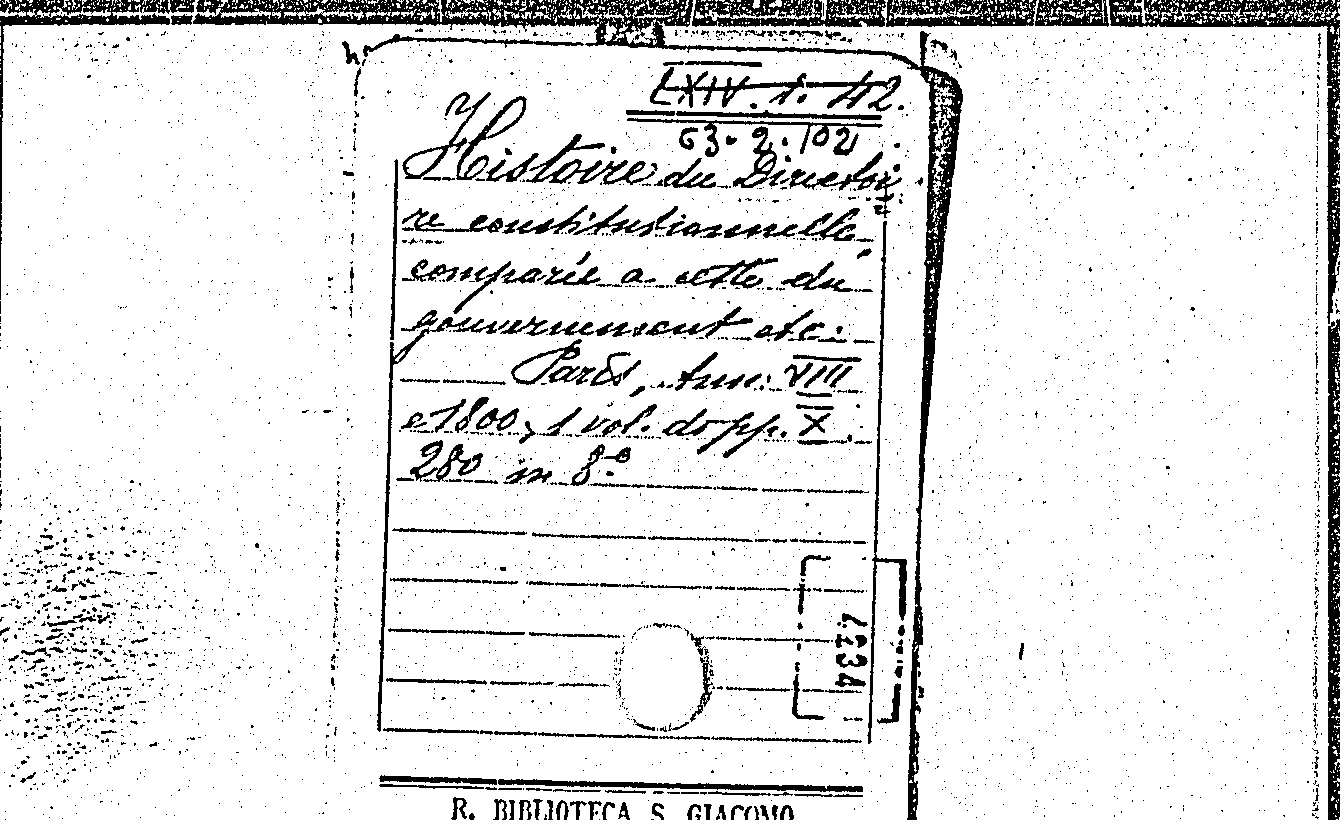 LXIV. 1. 42.
63. 2. 102
Histoire du Directoi
re constitutionnelle
comparée a celle du
gouvernement etc.
Paris, Ann: VIII
e 1800, 1 vol. do pp. X.
280 in 8.º
4234
R. BIBLIOTECA S. GIACOMO